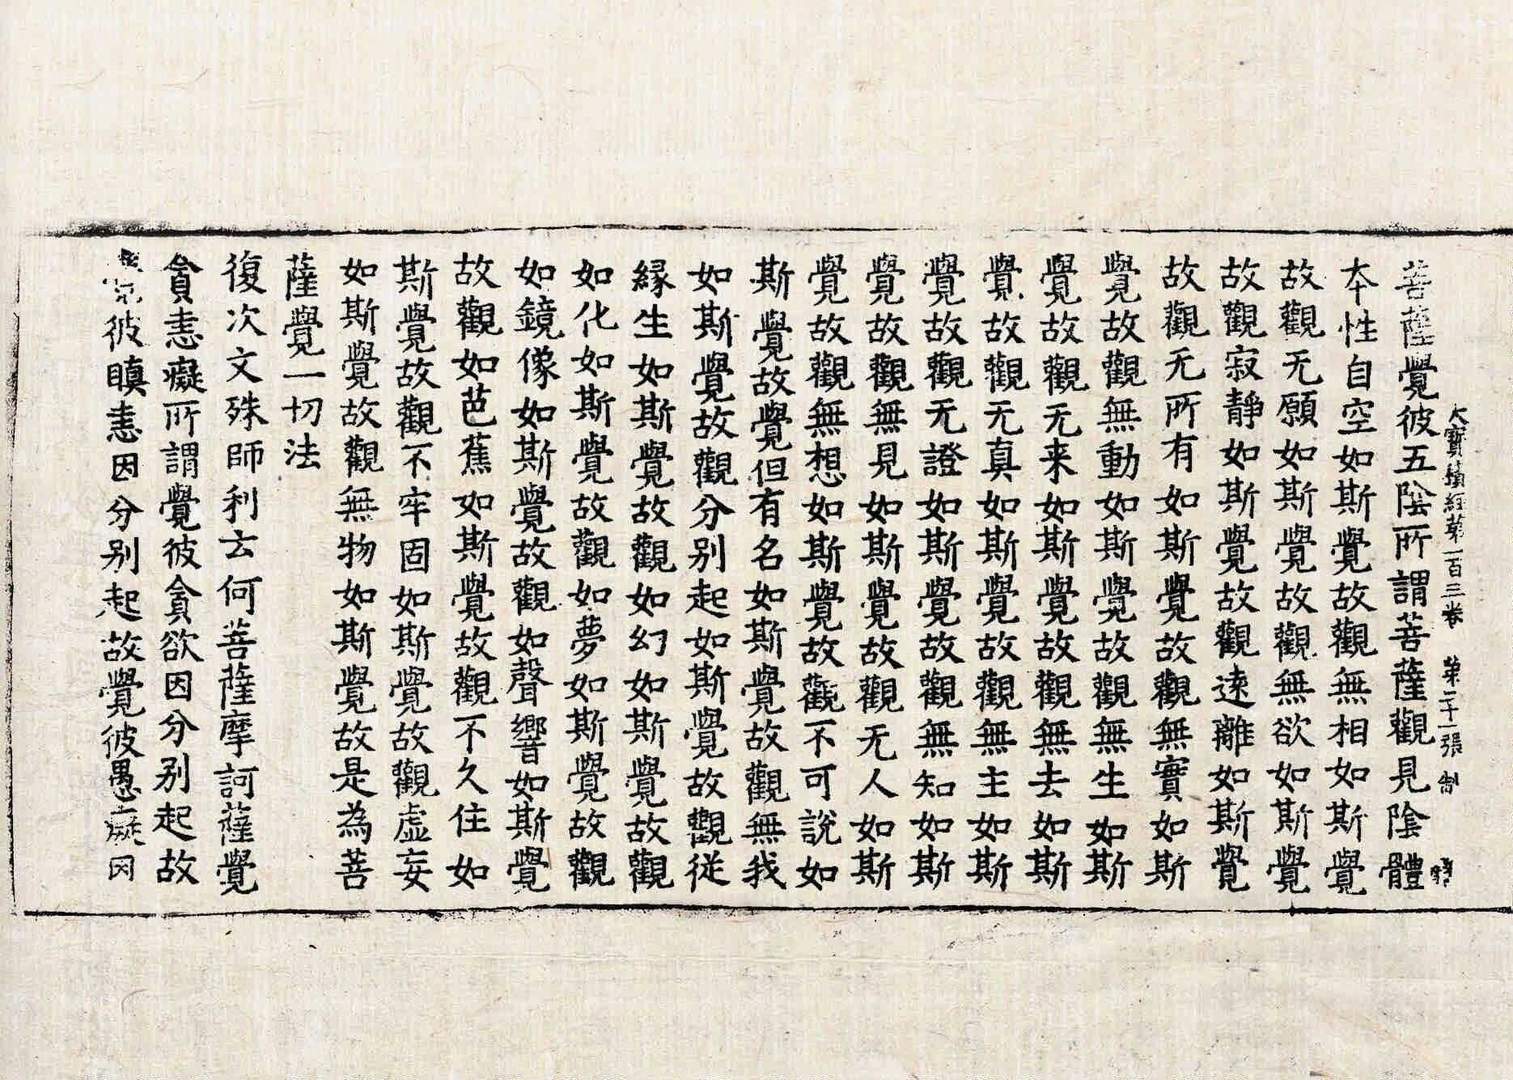 大寶積經苐一百三卷 苐二十一張 制
菩薩覺彼五陰所謂菩薩觀見陰體
本性自空如斯覺故觀無相如斯覺
故觀无願如斯覺故觀無欲如斯覺
故觀寂靜如斯覺故觀遠離如斯覺
故觀无所有如斯覺故觀無實如斯
覺故觀無動如斯覺故觀無生如斯
覺故觀无来如斯覺故觀無去如斯
覺故觀无真如斯覺故觀無主如斯
覺故觀无證如斯覺故觀無知如斯
覺故觀無見如斯覺故觀无人如斯
覺故觀無想如斯覺故觀不可說如
斯覺故覺但有名如斯覺故觀無我
如斯覺故觀分别起如斯覺故觀從
緣生如斯覺故觀如幻如斯覺故觀
如化如斯覺故觀如夢如斯覺故觀
如鏡像如斯覺故觀如聲響如斯覺
故觀如芭蕉如斯覺故觀不久住如
斯覺故觀不牢固如斯覺故觀虛妄
如斯覺故觀無物如斯覺故是為菩
薩覺一切法
復次文殊師利云何菩薩摩訶薩覺
貪恚癡所謂覺彼貪欲因分别起故
覺彼瞋恚因分别起故覺彼愚癡因